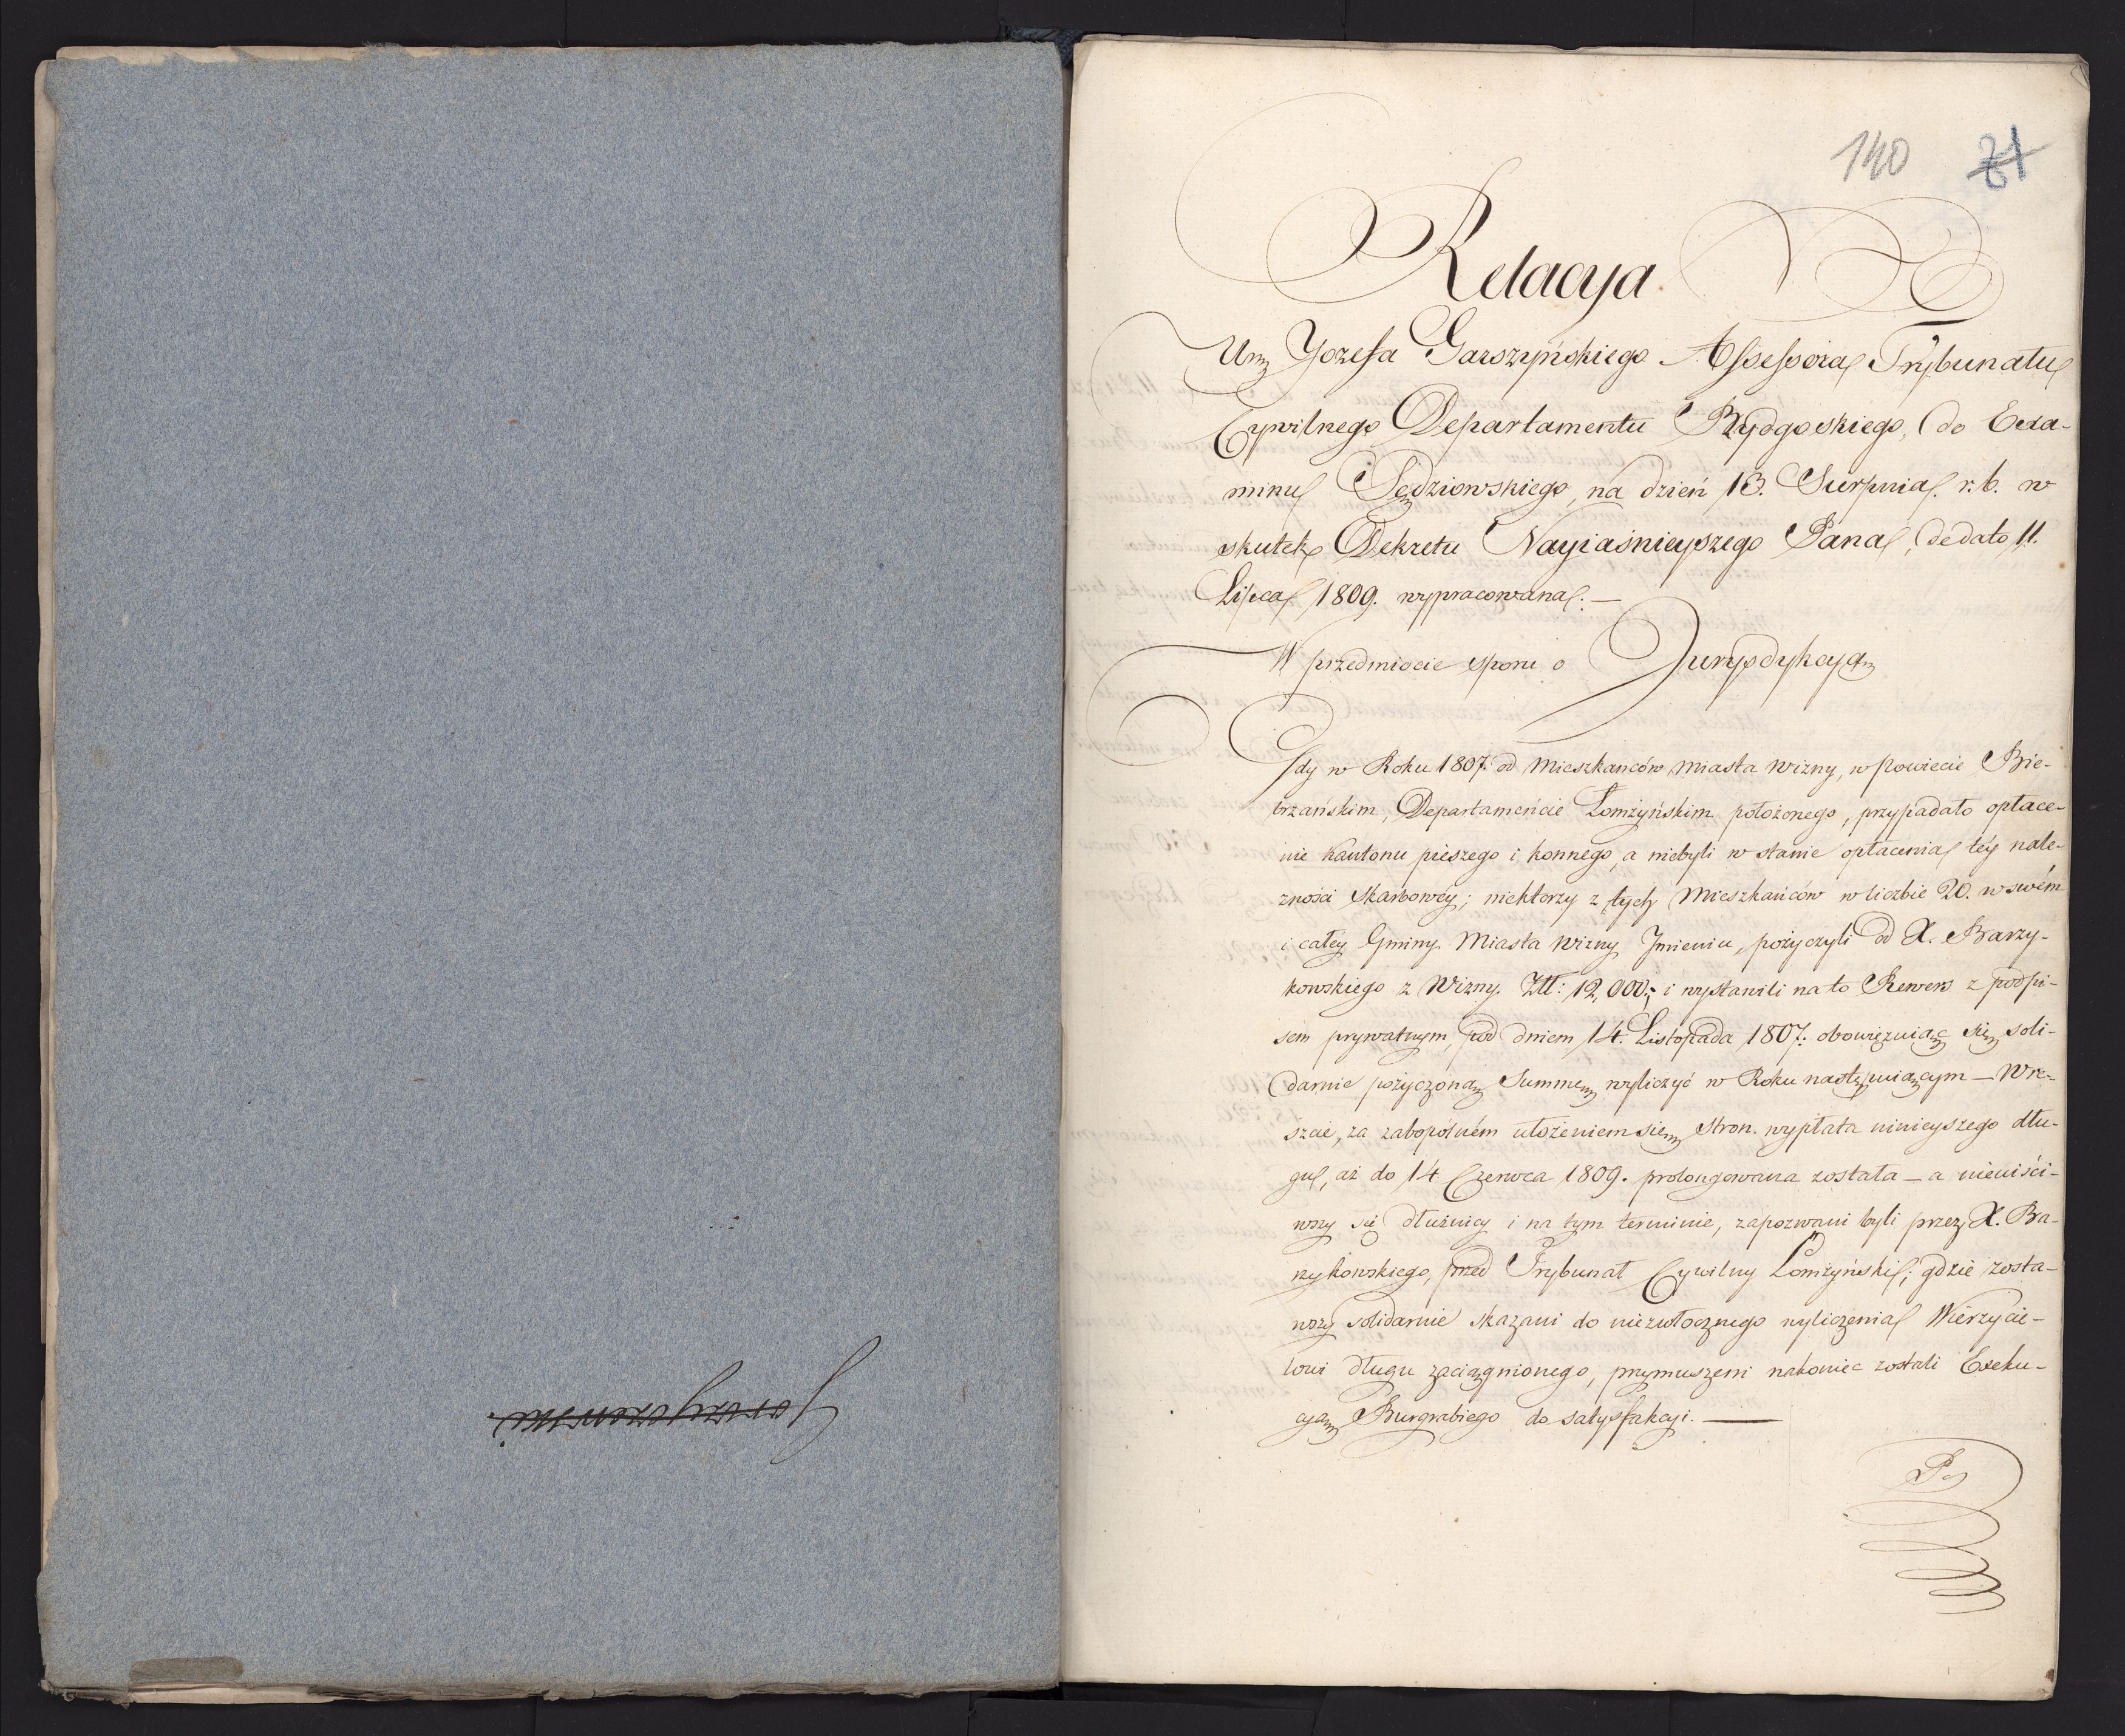 Gorzyczewski.
140 71
Relacya
Urz Jozefa Garszyńskiego Assessora Trybunału
Cywilnego Departamentu Bydgoskiego, do Exa-
minu Sędziowskiego, na dzień 13. Sierpnia r. b. w
skutek Dekretu Nayiaśnieyszego Pana, de dato 11.
Lipca 1809. wypracowana. —
W przedmiocie sporu o Jurysdykcyą
Gdy w Roku 1807. od Mieszkanców Miasta Wizny, w Powiecie Bie-
brzańskim, Departamencie Łomżyńskim położonego, przypadało opłace-
nie Kantonu pieszego i konnego, a niebyli w stanie opłacenia téy nale-
zności Skarbowéy; niektorzy z tych Mieszkańców w liczbie 20. w swém
i całey Gminy Miasta Wizny Jmieniu, pożyczyli od X. Barzy-
kowskiego z Wizny. Złł: 12,000; i wystawili na to Rewers z podpi-
sem prywatnym, pod dniem 14. Listopada 1807: obowięzuiąc się soli-
darnie pożyczoną Summę wyliczyć w Roku następuiącym — Wre-
szcie, za zabopólném ułożeniem się Stron. wypłata ninieyszego dłu-
gu, aż do 14 Czerwca 1809. prolongowana została — a nieuiści-
wszy się dłużnicy i na tym terminie, zapozwani byli przez X. Ba-
rzykowskiego, przed Trybunał Cywilny Łomżyński; gdzie zosta-
wszy solidarnie skazani do niezwłocznego wyliczenia Wierzycie-
lowi długu zaciągnionego, przymuszeni nakoniec zostali Exeku-
cyą Burgrabiego do satysfakcyi. —